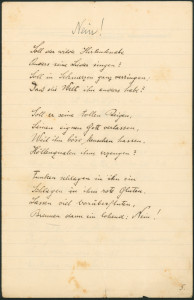 Nein!
Soll der wilde Hirtenknabe
Anders seine Lieder singen?
Soll in Schmerzen ganz versingen,
Daß die Welt ihn anders habe?
Soll er seine tollen Reigen,
Seinen eignen Gott verlassen,
Weil ihn böse Menschen hassen,
Höllenqualen ihm erzeugen?
Funken schlagen in ihn ein
Schlagen in ihm rote Gluten,
Lassen viel vorüberfluten,
Brennen dann ein lohend: Nein!